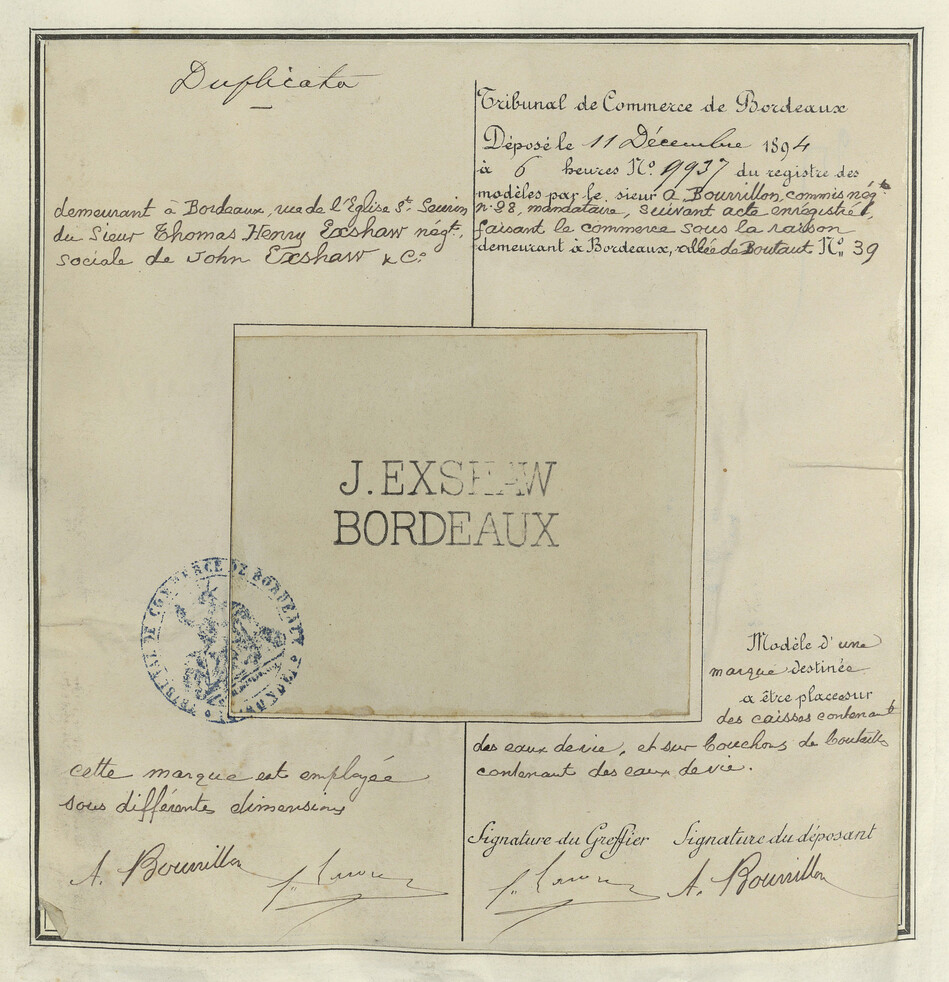 Duplicata
Tribunal de Commerce de Bordeaux
Déposé le 11 Décembre 1894
à 6 heures N° 9937 du registre des
modèles par le sieur A Bourrillon, commis négt
demeurant à Bordeaux, rue de l'Eglise St. Seurin n. 28, mandataire, suivant acte enregistré,
du Sieur Thomas Henry Exshaw négt, faisant le commerce sous la raison
sociale de John Exshaw & Co demeurant à Bordeaux, allée de Boutaut N° 39
J. EXSHAW
BORDEAUX
TRIBUNAL DE COMMERCE DE BORDEAUX
Modèle d'une
marque destinée
a être placee sur
des caisses contenant
des eaux de vie, et sur bouchons de bouteilles
contenant des eaux de vie.
cette marque est employée
sous différentes dimensions
Signature du Greffier Signature du déposant
A. Bourrillon
A. Bourrillon